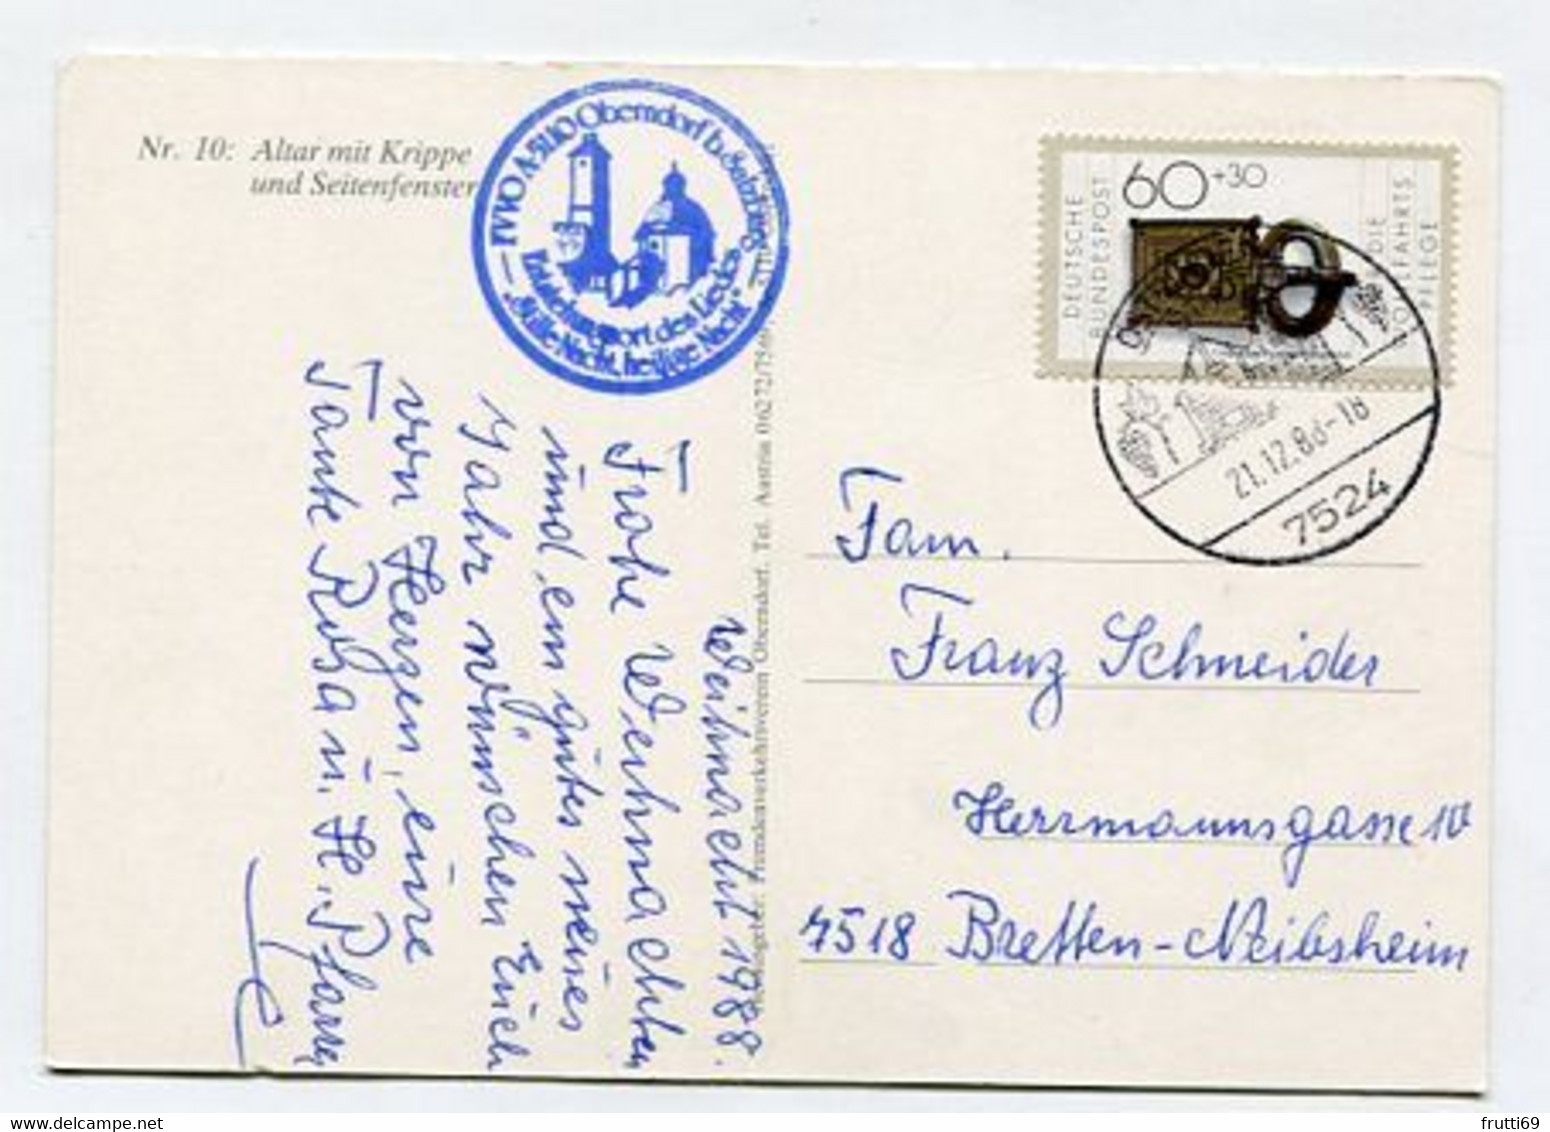 Nr. 10: Altar mit Krippe
und Seitenfenster
A-5110 Oberndorf b. Salzburg
Entstehungsort des Liedes
"Stille Nacht, heilige Nacht"
DEUTSCHE
BUNDESPOST
60+30
FÜR DIE
WOHLFAHRTS
PFLEGE
21.12.88-18
7524
Weihnacht 1988.
Frohe Weihnachten
und ein gutes neues
Jahr wünschen Euch
von Herzen, eure
Tante Rosa u. H. Pfarrer
Fremdenverkehrsverein Oberndorf. Tel. Austria 06272/7569
Fam.
Franz Schneider
Herrmannsgasse 10
7518 Bretten-Neibsheim
frutti69